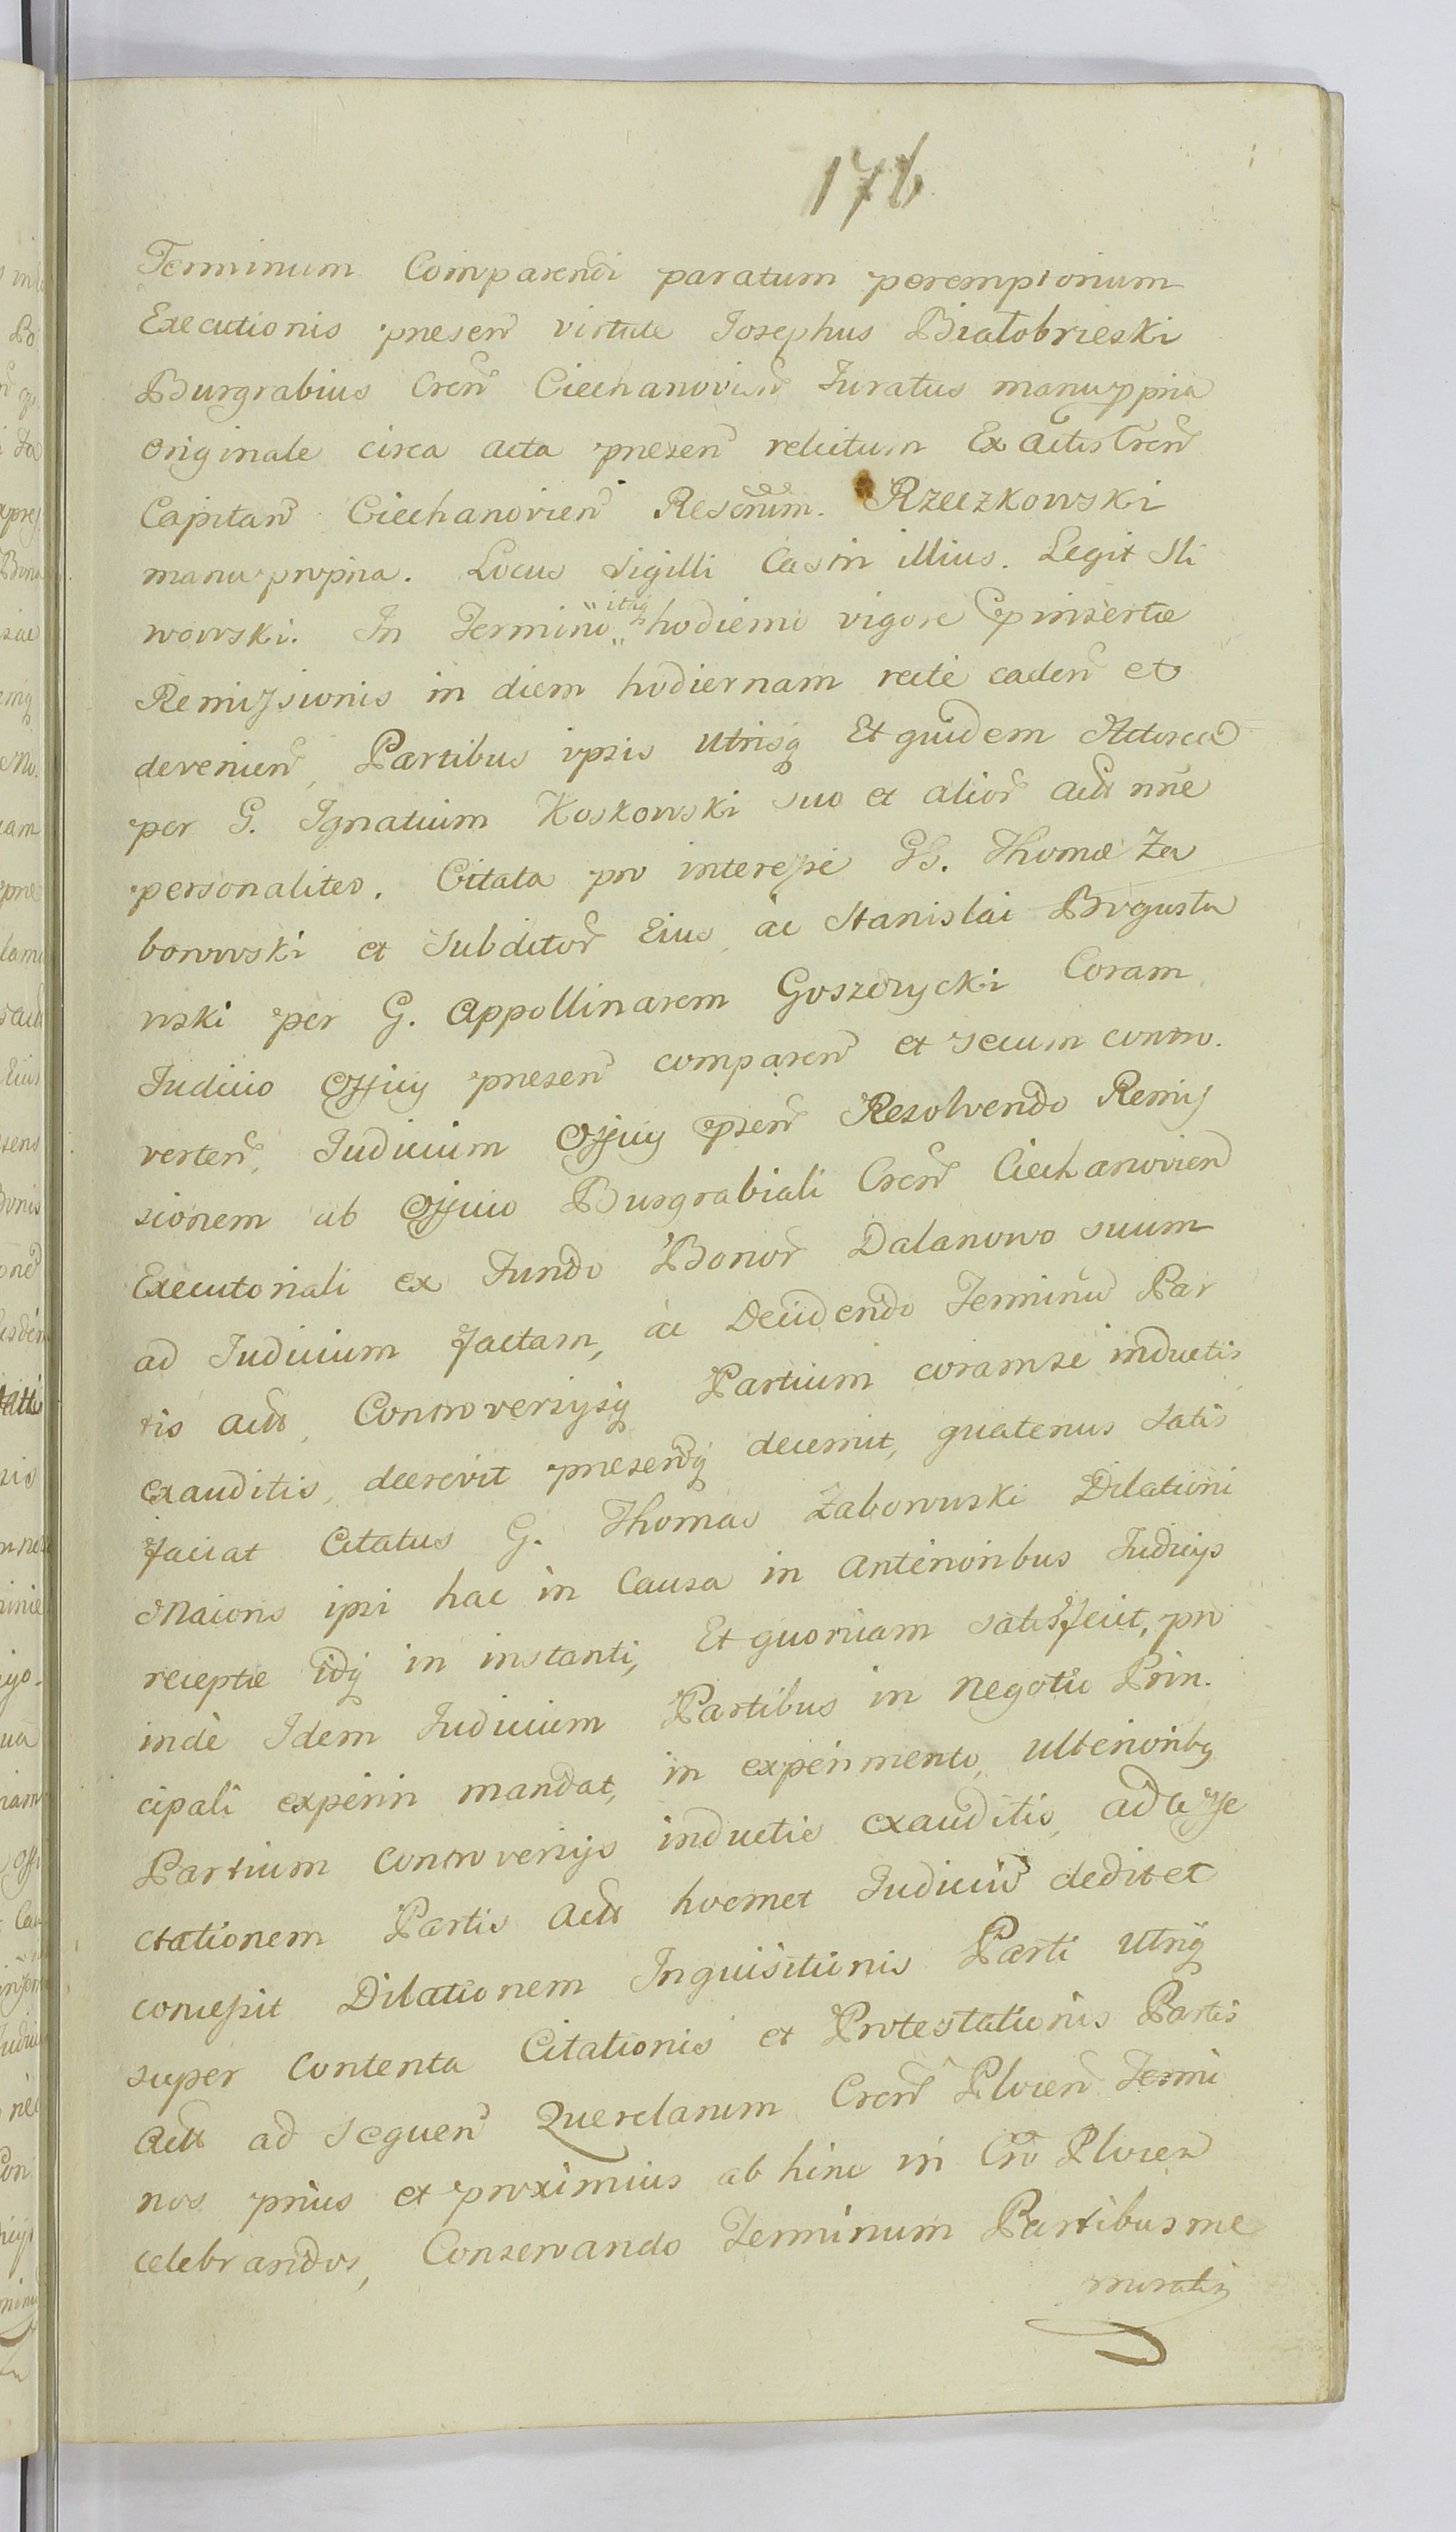 176
Terminum Comparendi paratum peremptorium
Executionis presen virtute Josephus Białobrzeski
Burgrabius Cren Ciechanovien Juratus manu ppria
Originale circa acta presen relictum Ex Actis Cren
Capitan Ciechanovien Rescrum. Rzeczkowski
manu propria. Locus Sigilli Castri illius. Legit Sli
wowski. In Termino itaq hodierno vigore pinsertæ
Remissionis in diem hodiernam recte caden et
devenien, Partibus ipsis utrisq Et quidem Actorea
per G. Ignatium Koskowski suo et alior act nne
personaliter. Citata pro interesse GG. Thomæ Za
borowski et Subditor Eius, ac Stanislai Bogusła
wski per G. Appollinarem Goszczycki Coram
Judicio Officij presen comparen et secum contro.
verten, Judicium Officij psen Resolvendo Remis
sionem ab Officio Burgrabiali Cren Ciechanovien
Executoriali ex Fundo Bonor Dalanowo suum
ad Judicium factam, ac Decidendo Terminu Par
tis act, Controversijsq Partium coram se inductis
exauditis, decrevit presentiq decernit, quatenus Satis
faciat Citatus G. Thomas Zaborowski Dilationi
Maioris ipsi hac in Causa in anterioribus Judicijs
receptæ idq in instanti, Et quoniam satisfecit, pro
inde Idem Judicium Partibus in negotio Prin.
cipali experiri mandat, in experimento, ulterioribq
Partium Controversijs inductis exauditis, ad affe
ctationem Partis Act hocmet Judiciu dedit et
concessit Dilationem Inquisitionis Parti utriq
super Contenta Citationis et Protestationis Partis
Act ad Sequen Querelarum Cren Plocen Termi
nos prius et proximius ab hinc in Cro Plocen
celebrandos, Conservando Terminum Partibus me
moratis